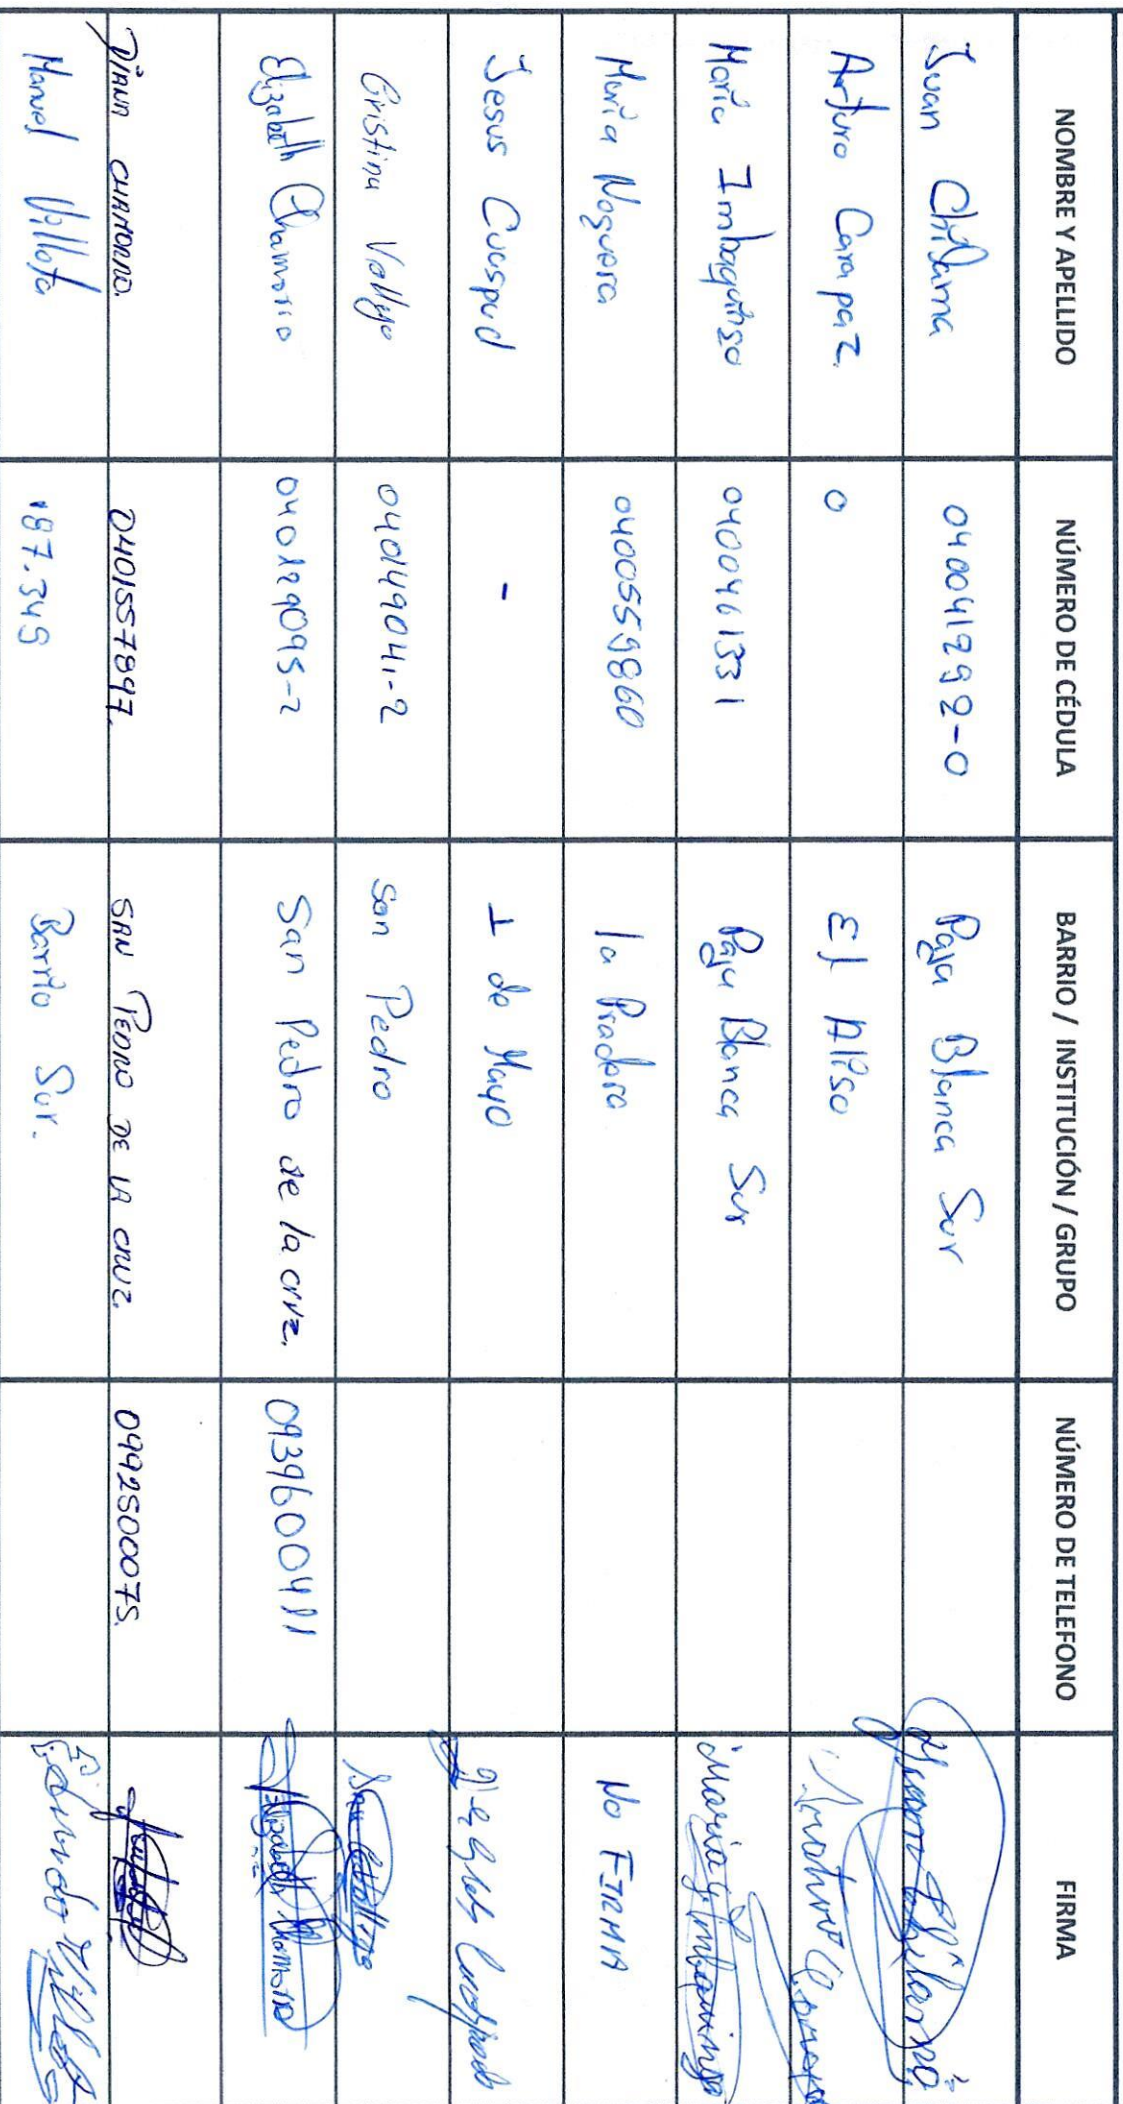 NOMBRE Y APELLIDO NÚMERO DE CÉDULA BARRIO / INSTITUCIÓN / GRUPO NÚMERO DE TELEFONO FIRMA
Juan Chilama 040041292-0 Paja Blanca Sur
Arturo Carapaz. 0 El Aliso
Maria Imbaquingo 0400461331 Paja Blanca Sur
Maria Noguera 0400559860 la Pradera No FIRMA
Jesus Cuuspud - 1 de Mayo
Cristina Vallejo 040149041-2 San Pedro
Elizabeth Chamorro 040129095-2 San Pedro de la cruz. 0939600411 Elizabeth Chamorro
DIANA CHAMORRO. 0401557897. SAN PEDRO DE LA CRUZ. 0992500075.
Manuel Villota 187.349 Barrio Sur.